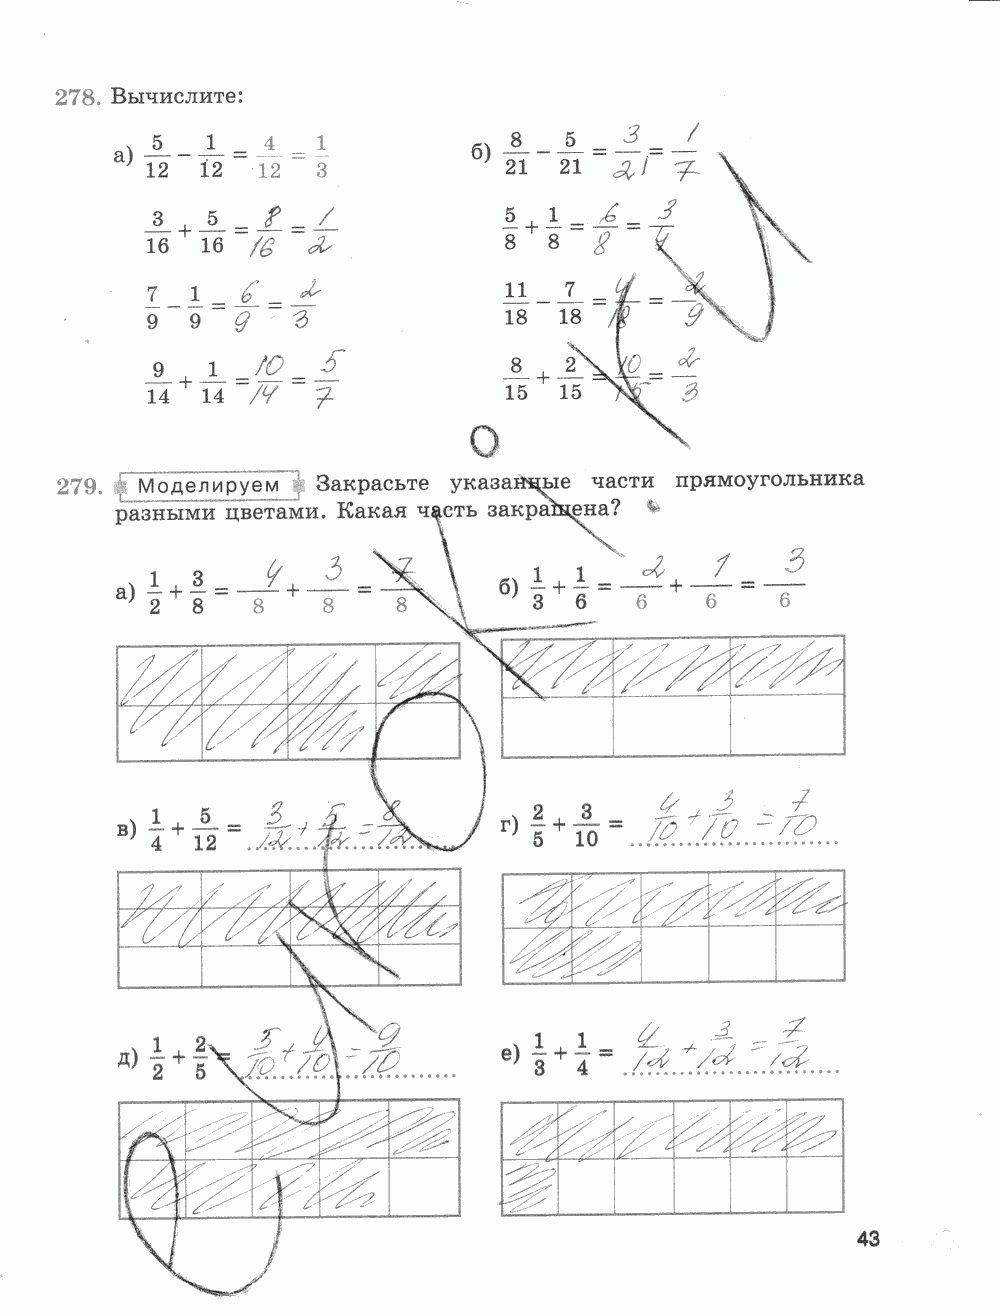 278. Вычислите:
а) 5/12 − 1/12 = 4/12 = 1/3
б) 8/21 − 5/21 = 3/21 = 1/7
3/16 + 5/16 = 8/16 = 1/2
5/8 + 1/8 = 6/8 = 3/4
7/9 − 1/9 = 6/9 = 2/3
11/18 − 7/18 = 4/18 = 2/9
9/14 + 1/14 = 10/14 = 5/7
8/15 + 2/15 = 10/15 = 2/3
279. Моделируем Закрасьте указанные части прямоугольника
разными цветами. Какая часть закрашена?
а) 1/2 + 3/8 = 4/8 + 3/8 = 7/8
б) 1/3 + 1/6 = 2/6 + 1/6 = 3/6
в) 1/4 + 5/12 = 3/12 + 5/12 = 8/12
г) 2/5 + 3/10 = 4/10 + 3/10 = 7/10
д) 1/2 + 2/5 = 5/10 + 4/10 = 9/10
е) 1/3 + 1/4 = 4/12 + 3/12 = 7/12
43